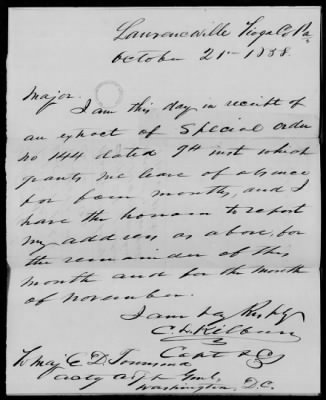 Lawrenceville Tioga Co Pa
October 21st 1858.
Major.
I am this day in receipt of
an extract of Special order
no 144 dated 9th inst which
grants me leave of absence
for four months, and I
have the honour to report
my address as above, for
the remainder of this
month and for the month
of November.
I am Sir Respy
C L Kilburn
Capt & CS
To Maj E D Townsend
Asst Adjt Genl,
Washington, D.C.